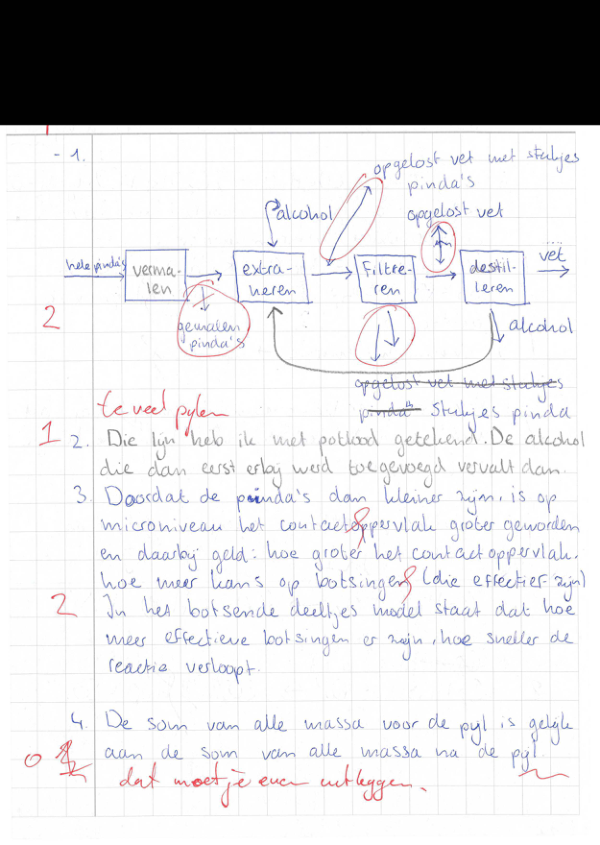 - 1.
opgelost vet met stukjes
pinda's
alcohol
opgelost vet
hele pinda's
verma-
len
extra-
heren
Filtre-
ren
destil-
leren
vet
gemalen
pinda's
alcohol
2
opgelost vet met stukjes
pinda's stukjes pinda
te veel pijlen
1
2. Die lijn heb ik met potlood getekend. De alcohol
die dan eerst erbij werd toegevoegd vervalt dan.
3. Doordat de pinda's dan kleiner zijn, is op
microniveau het contactoppervlak groter geworden
en daarbij geld: hoe groter het contactoppervlak.
hoe meer kans op botsingen (die effectief zijn)
2
In het botsende deeltjes model staat dat hoe
meer effectieve botsingen er zijn, hoe sneller de
reactie verloopt.
4. De som van alle massa voor de pijl is gelijk
0
aan de som van alle massa na de pijl.
dat moet je even uitleggen.